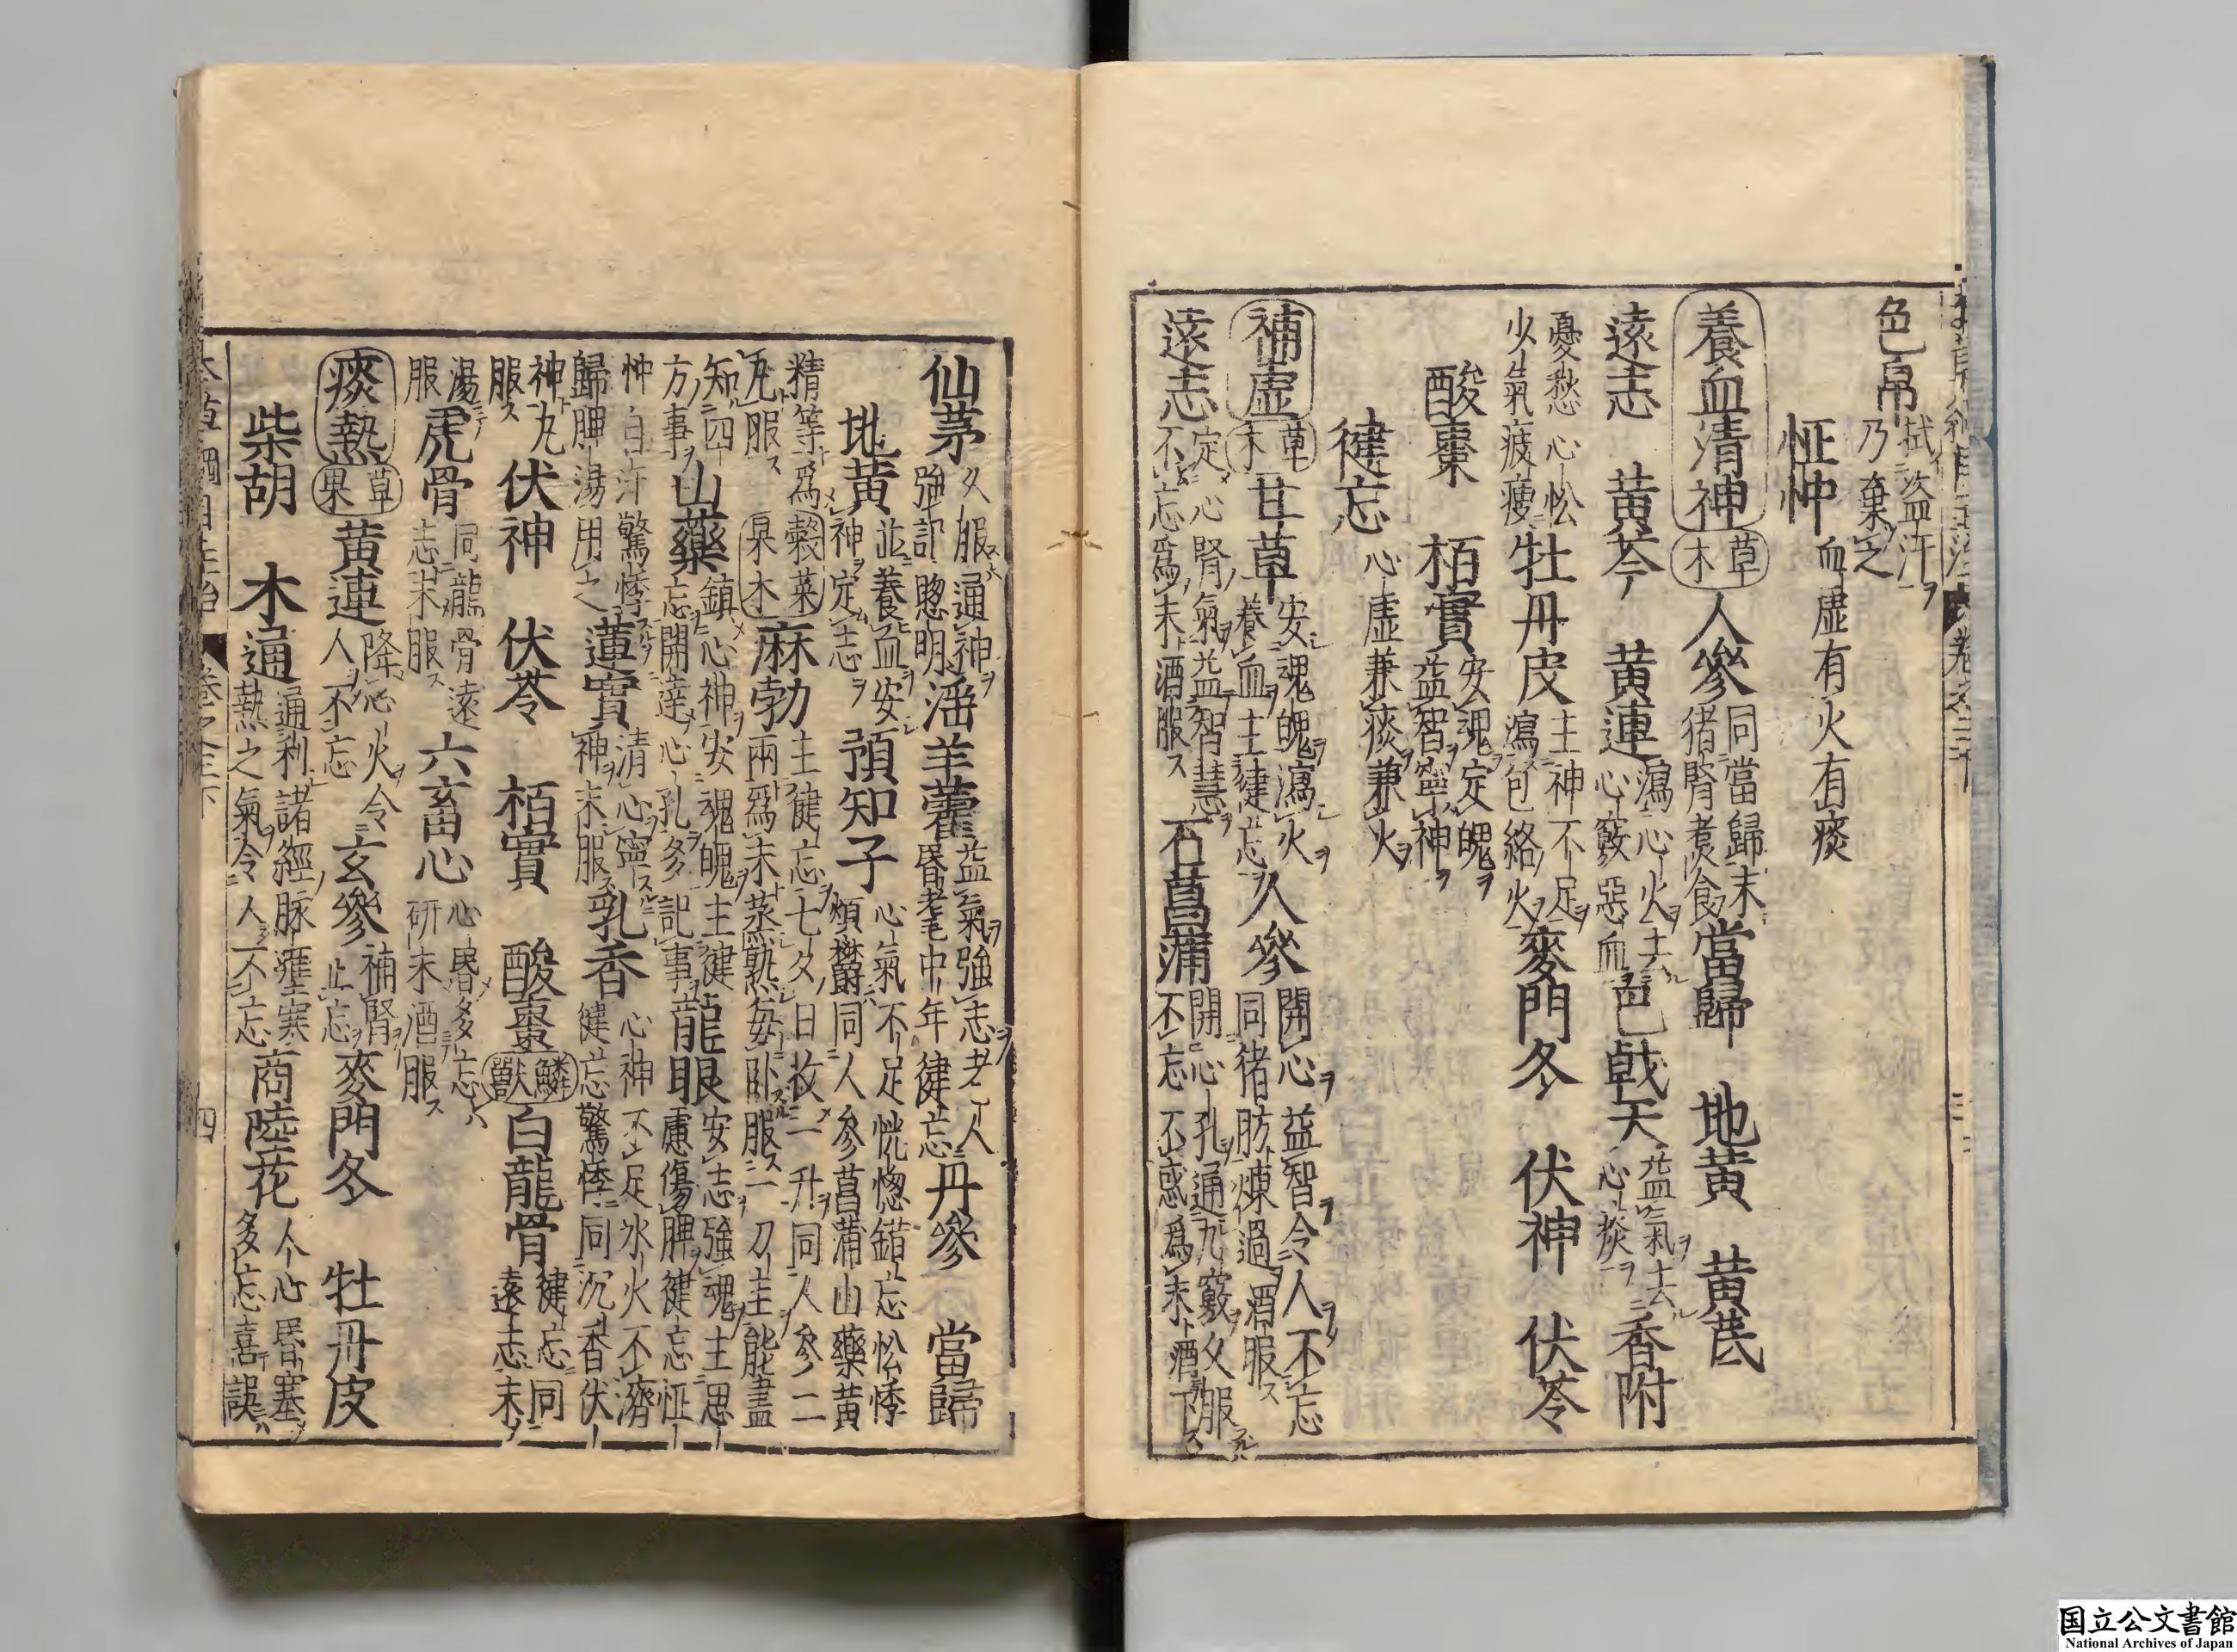 色帛 拭盗汗ヲ乃棄之
怔忡 血虚有火有痰
養血清神 草木 人參 同當歸末猪腎煮食 當歸 地黄 黄芪
遠志 黄芩 黄連 瀉心火去心竅惡血 巴戟天 益氣去心痰 香附
憂愁心忪少氣疲痩 牡丹皮 主神不足瀉包絡火 麥門冬 伏神 伏苓
酸棗 栢實 安魂定魄益智寧神
健忘 心虚兼痰兼火
補虚 草木 甘草 安魂魄瀉火養血主健忘 人參 開心益智令人不忘同猪肪煉過酒服
遠志 定心腎氣益智慧不忘爲末酒服 石菖蒲 開心孔通九竅久服不忘不惑爲末酒下
仙茅 久服通神強記聰明 淫羊藿 益氣強志老人昏耄中年健忘 丹參 當歸
地黄 並養血安神定志 預知子 心氣不足恍惚錯忘忪悸煩鬱同人參菖蒲山藥黄
精等爲丸服 穀菜果木 麻勃 主健忘七夕日收一升同人參二兩爲末蒸熟毎卧服一刀主能盡
知四方事 山藥 鎮心神安魂魄主健忘開達心孔多記事 龍眼 安志強魂主思慮傷脾健忘怔
忡自汗驚悸歸脾湯用之 蓮實 清心寧神末服 乳香 心神不足水火不濟健忘驚悸同沉香伏
神丸服 伏神 伏苓 栢實 酸棗 鱗獸 白龍骨 健忘同遠志末
湯服 虎骨 同龍骨遠志末服 六畜心 心昏多忘研末酒服
痰熱 草果 黄連 降心火令人不忘 玄參 補腎止忘 麥門冬 牡丹皮
柴胡 木通 通利諸經脉壅寒熱之氣令人不忘 商陸花 人心昏塞多忘喜誤
本草綱目主治 卷之三下 四
国立公文書館
National Archives of Japan